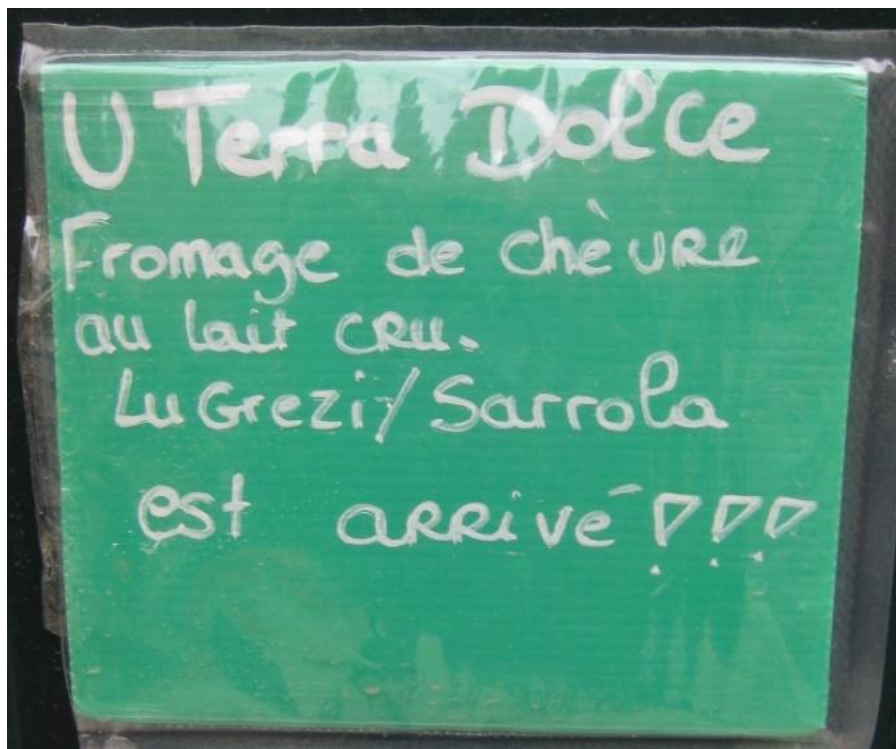 U Terra Dolce
Fromage de chèvre
au lait cru.
Lu Grezi/Sarrola
est arrivé !!!